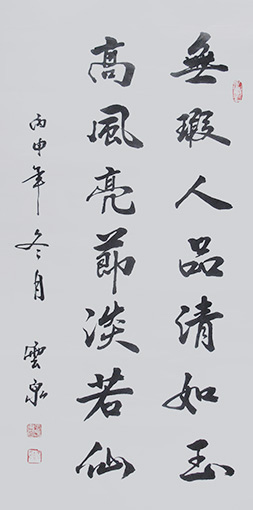 無瑕人品清如玉
高風亮節淡若仙
丙申年冬月 雲泉